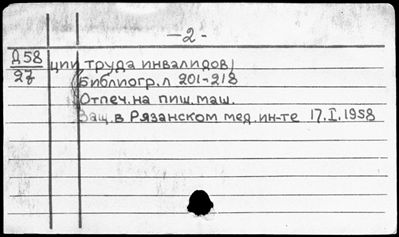 —2—
Д58
27
ции труда инвалидов)
Библиогр. л 201-218
Отпеч. на пиш. маш.
Защ. в Рязанском мед. ин-те 17.I.1958